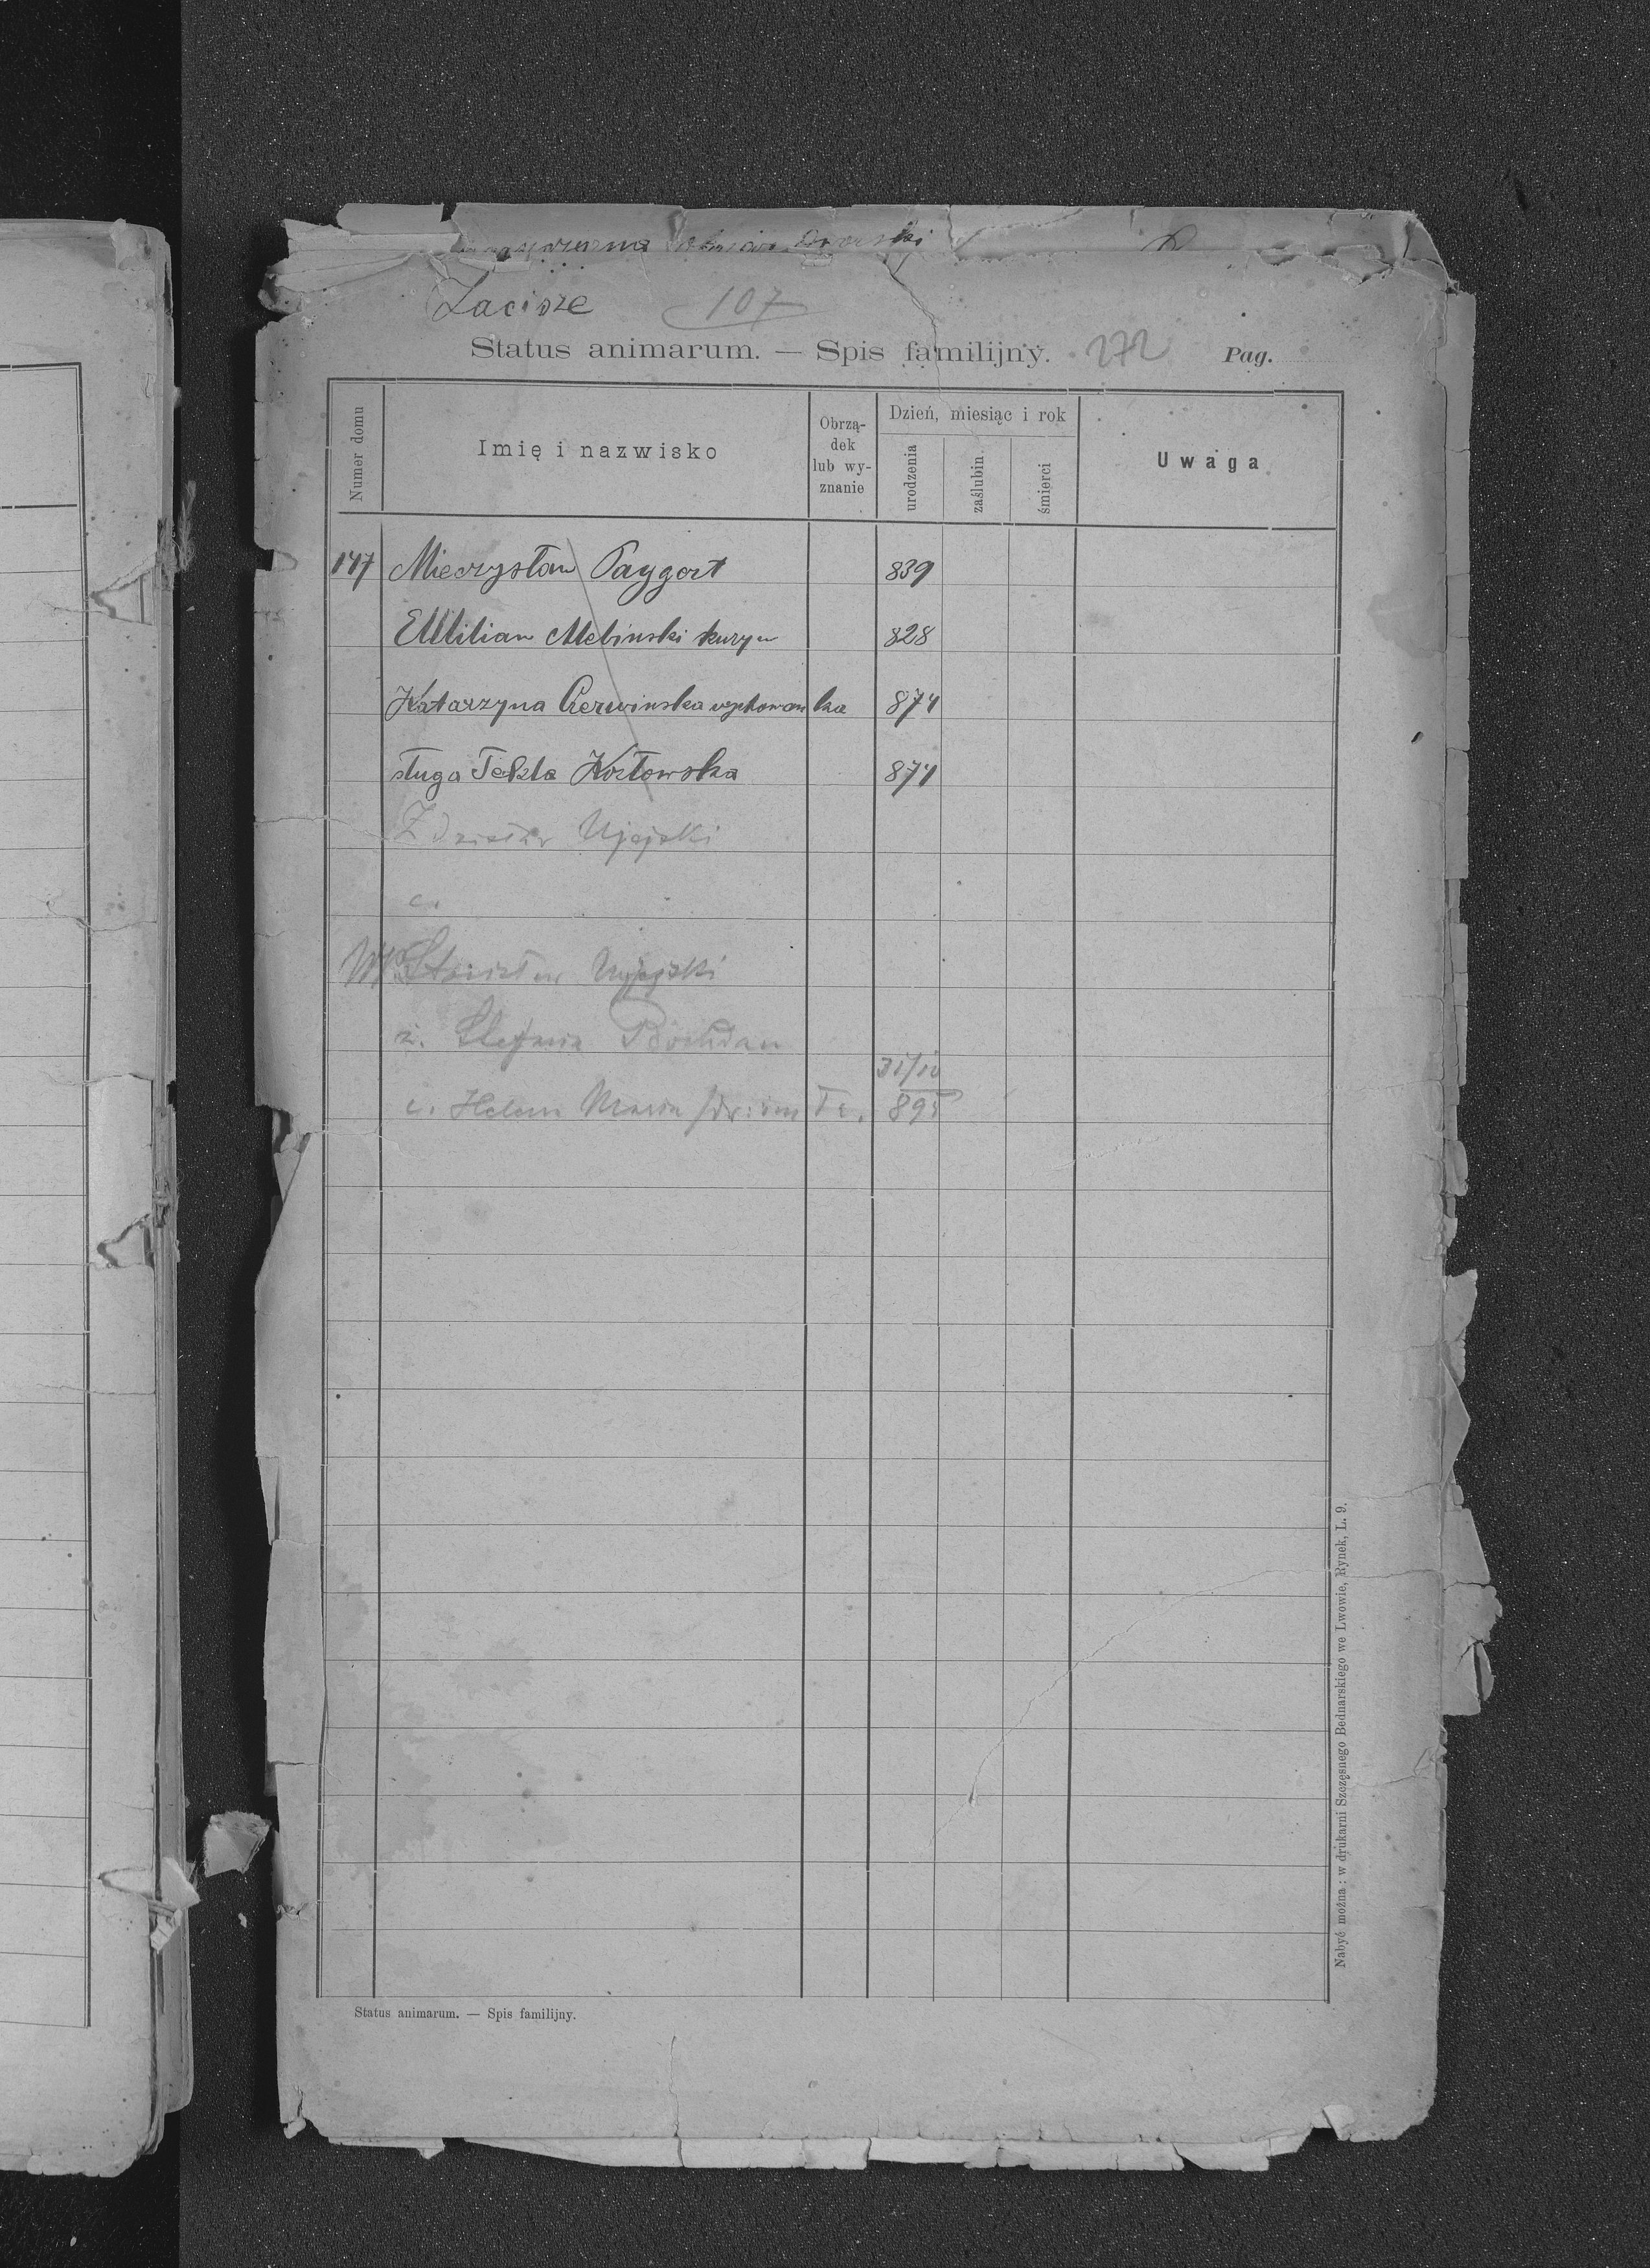 Zacisze 107
Status animarum. — Spis familijny. 272 Pag.
Numer domu
Imię i nazwisko
Obrzą-
dek
lub wy-
znanie
Dzień, miesiąc i rok
urodzenia
zaślubin
śmierci
Uwaga
147 Mieczysław Paygert 839
Melbinski kuzyn 828
Katarzyna Czerwinska wychowanka 874
sługa Tekla Kozłowska 874
Zdzisław Ujejski
c.
Ujejski
ż. Stefania Bohdan
31/10
c. Helena Maria 895
Nabyć można: w drukarni Szczęsnego Bednarskiego we Lwowie, Rynek, L. 9.
Status animarum. — Spis familijny.